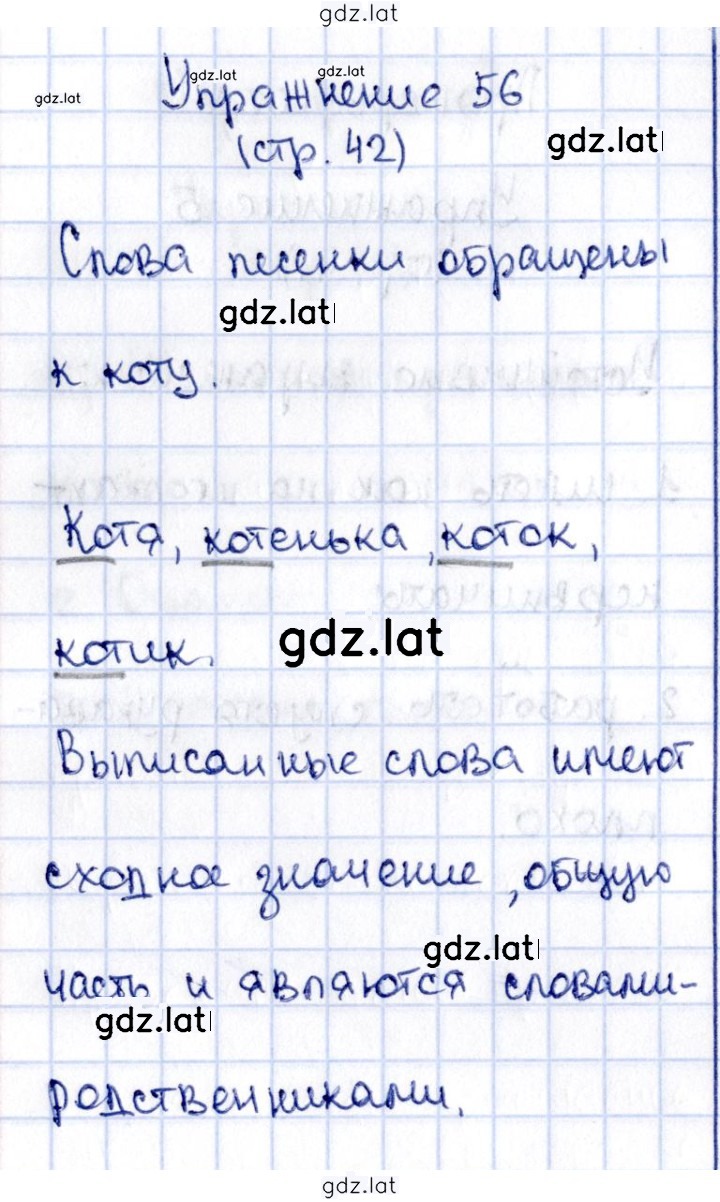 gdz.lat
gdz.lat gdz.lat gdz.lat
Упражнение 56
(стр. 42)
gdz.lat
Слова песенки обращены
gdz.lat
к коту.
Котя, котенька, коток,
котик.
gdz.lat
Выписанные слова имеют
сходное значение, общую
gdz.lat
часть и являются словами-
gdz.lat
родственниками.
gdz.lat